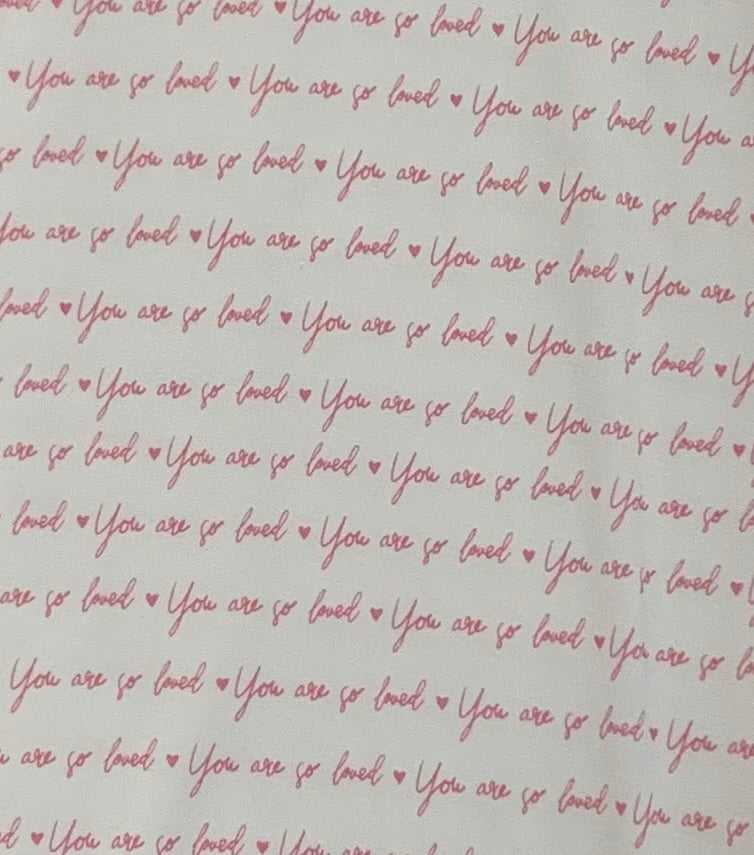 loved ♥ You are so loved ♥ You are so loved ♥ You are so loved ♥
♥ You are so loved ♥ You are so loved ♥ You are so loved ♥ You
so loved ♥ You are so loved ♥ You are so loved ♥ You are so loved
You are so loved ♥ You are so loved ♥ You are so loved ♥ You are
loved ♥ You are so loved ♥ You are so loved ♥ You are so loved ♥
loved ♥ You are so loved ♥ You are so loved ♥ You are so loved ♥
are so loved ♥ You are so loved ♥ You are so loved ♥ You are so
loved ♥ You are so loved ♥ You are so loved ♥ You are so loved ♥
are so loved ♥ You are so loved ♥ You are so loved ♥ You are so
You are so loved ♥ You are so loved ♥ You are so loved ♥ You are
are so loved ♥ You are so loved ♥ You are so loved ♥ You are so
♥ You are so loved ♥ You are so loved